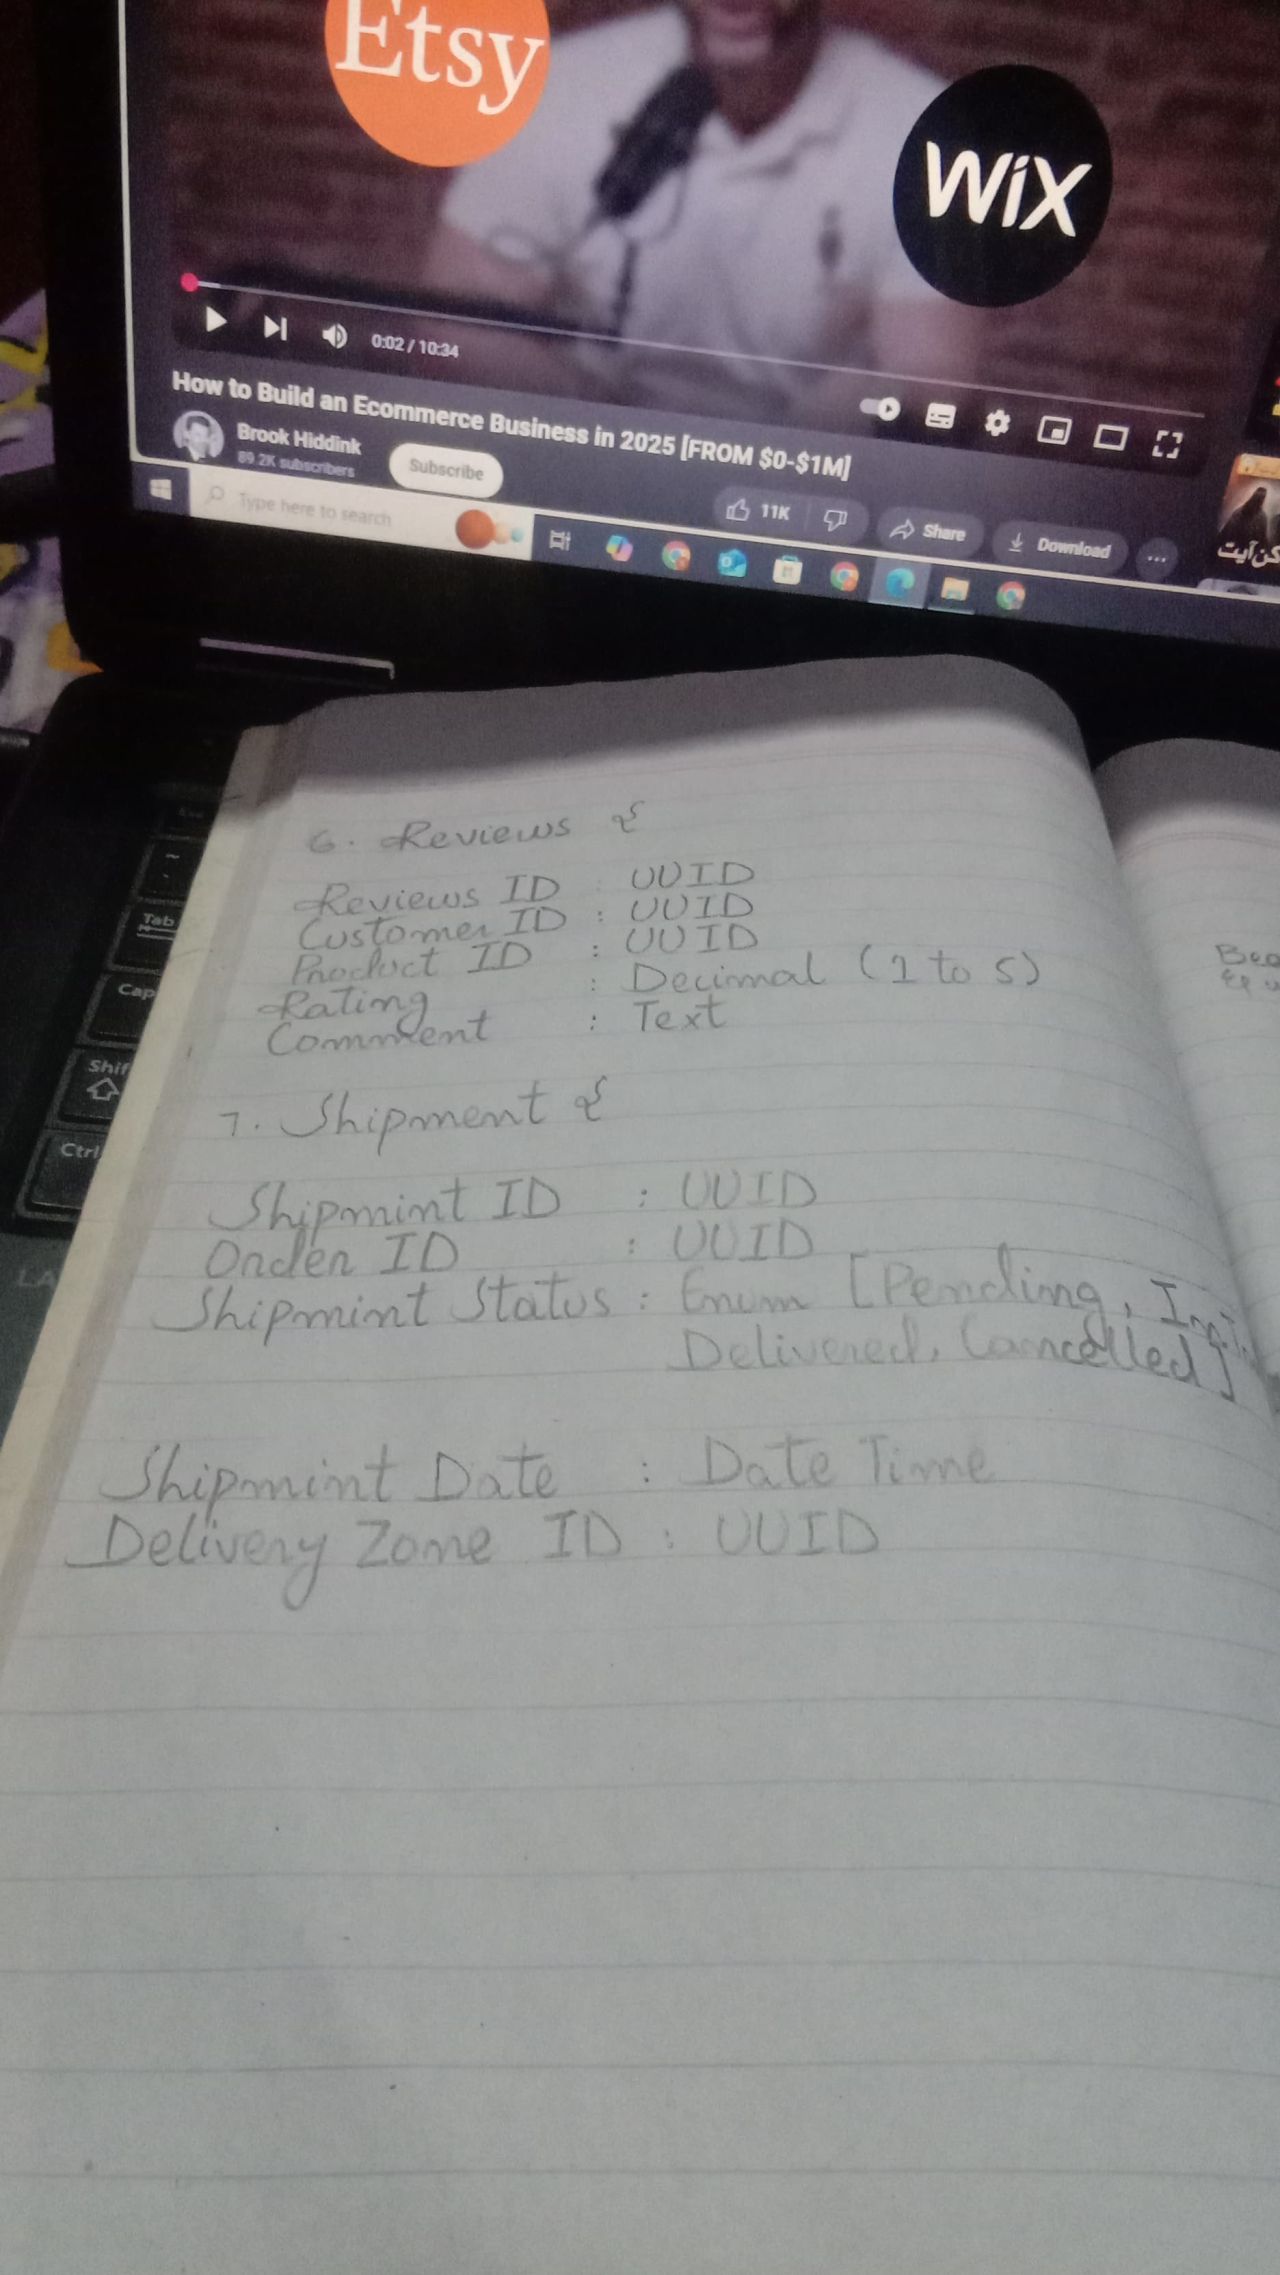 Etsy
WiX
0:02 / 10:34
How to Build an Ecommerce Business in 2025 [FROM $0-$1M]
Brook Hiddink
89.2K subscribers
Subscribe
11K
Share
Download
Type here to search
Tab
Cap
Shif
Ctrl
6. Reviews {
Reviews ID : UUID
Customer ID : UUID
Product ID : UUID
Rating : Decimal (1 to 5)
Comment : Text
7. Shipment {
Shipmint ID : UUID
Order ID : UUID
Shipmint Status : Enum [Pending,
Delivered, Cancelled]
Shipmint Date : Date Time
Delivery Zone ID : UUID